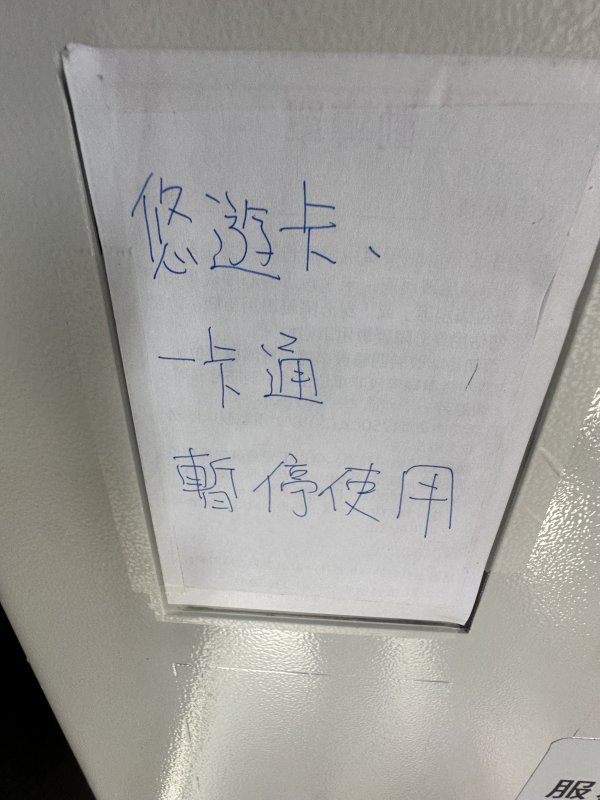 悠遊卡、
一卡通
暫停使用
服